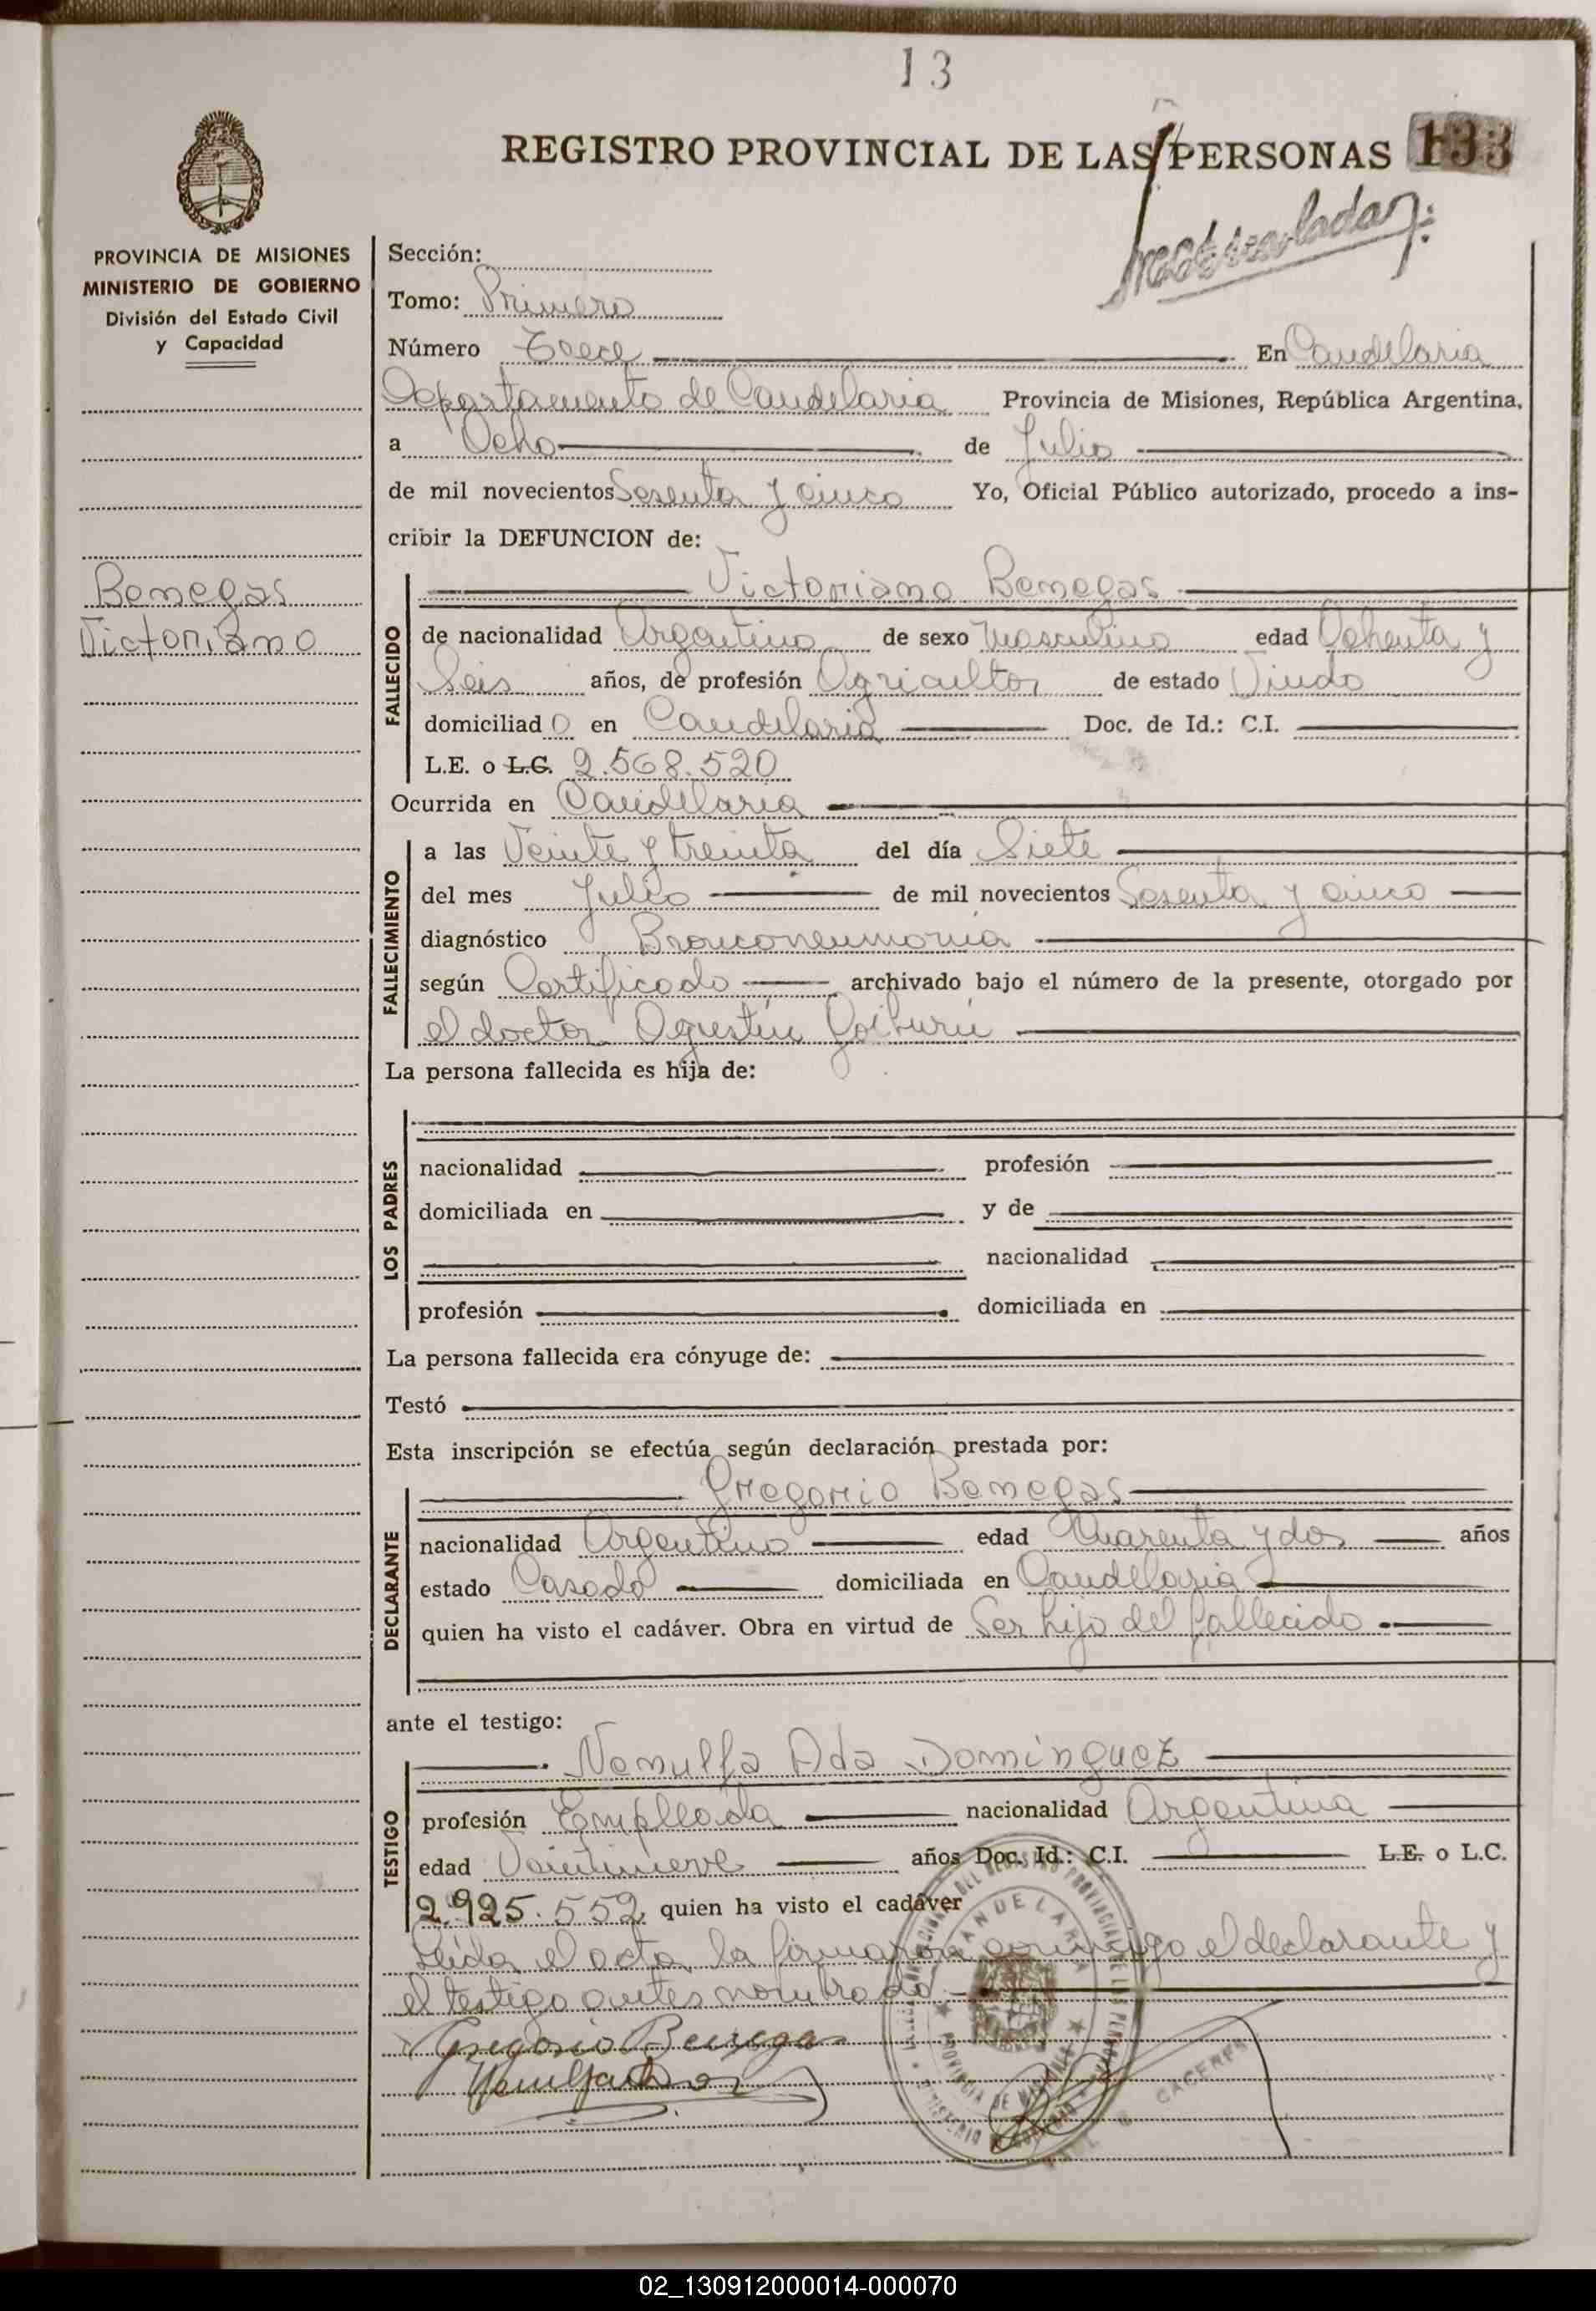 13
REGISTRO PROVINCIAL DE LAS PERSONAS 133
PROVINCIA DE MISIONES
MINISTERIO DE GOBIERNO
División del Estado Civil
y Capacidad
Benegas
Victoriano
Sección:
Tomo: Primero
Número Trece En Candelaria
Departamento de Candelaria Provincia de Misiones, República Argentina,
a Ocho de Julio
de mil novecientos Sesenta y cinco Yo, Oficial Público autorizado, procedo a ins-
cribir la DEFUNCION de:
Victoriano Benegas
FALLECIDO
de nacionalidad Argentino de sexo Masculino edad Ochenta y
Seis años, de profesión Agricultor de estado Viudo
domiciliado en Candelaria Doc. de Id.: C.I.
L.E. o L.C. 2.568.520
Ocurrida en Candelaria
FALLECIMIENTO
a las Veinte y treinta del día Siete
del mes Julio de mil novecientos Sesenta y cinco
diagnóstico Bronconeumonía
según Certificado archivado bajo el número de la presente, otorgado por
el doctor Agustín Goiburú
La persona fallecida es hija de:
LOS PADRES
nacionalidad profesión
domiciliada en y de
nacionalidad
profesión domiciliada en
La persona fallecida era cónyuge de:
Testó
Esta inscripción se efectúa según declaración prestada por:
Gregorio Benegas
DECLARANTE
nacionalidad Argentino edad Cuarenta y dos años
estado Casado domiciliada en Candelaria
quien ha visto el cadáver. Obra en virtud de Ser hijo del fallecido
ante el testigo:
Nemulfa Ada Dominguez
TESTIGO
profesión Empleada nacionalidad Argentina
edad Veintinueve años Doc. Id.: C.I. L.E. o L.C.
2.925.552 quien ha visto el cadáver
Leida el acta la firmaron conmigo el declarante y
el testigo antes nombrado.
Gregorio Benegas
CANDELARIA
PROVINCIA DE MISIONES
CACERES
02_130912000014-000070